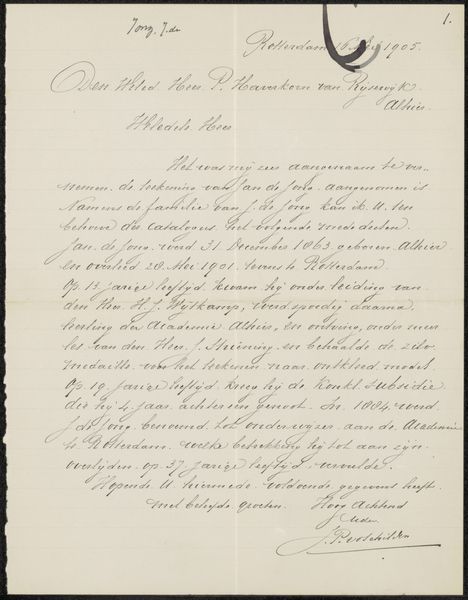 1.
Jong, J. de
Rotterdam 16 Mei 1905.
Den WelEd. Heer P. Haverkorn van Rijsewijk
Alhier.
WelEdele Heer
Het was mij zeer aangenaam te ver-
nemen de teekening van Jan de Jong aangenomen is
Namens de familie van J. de Jong kan ik U. ten
behoeve des catalogus het volgende mededeelen
Jan de Jong werd 31 December 1863 geboren Alhier
en overleed 28 Mei 1901 tevens te Rotterdam
Op 13 jarige leeftijd kwam hij onder leiding van
den Heer H. J. Wijtkamp, werd spoedig daarna
leerling der Academie Alhier, en ontving onder meer
les van den Heer J. Striening en behaalde de zilv.
medaille voor het teekenen naar ontkleed model.
Op 19 jarige leeftijd kreeg hij de Konkl. subsidie
die hij 4 jaar achtereen genoot. In 1884 werd
J de Jong benoemd tot onderwijzer aan de Academie
te Rotterdam welke betrekking hij tot aan zijn
overlijden op 37 jarige leeftijd vervulde.
Hopende U hiermede voldoende gegevens heeft
met beleefde groeten Hoog Achtend
U.dw.